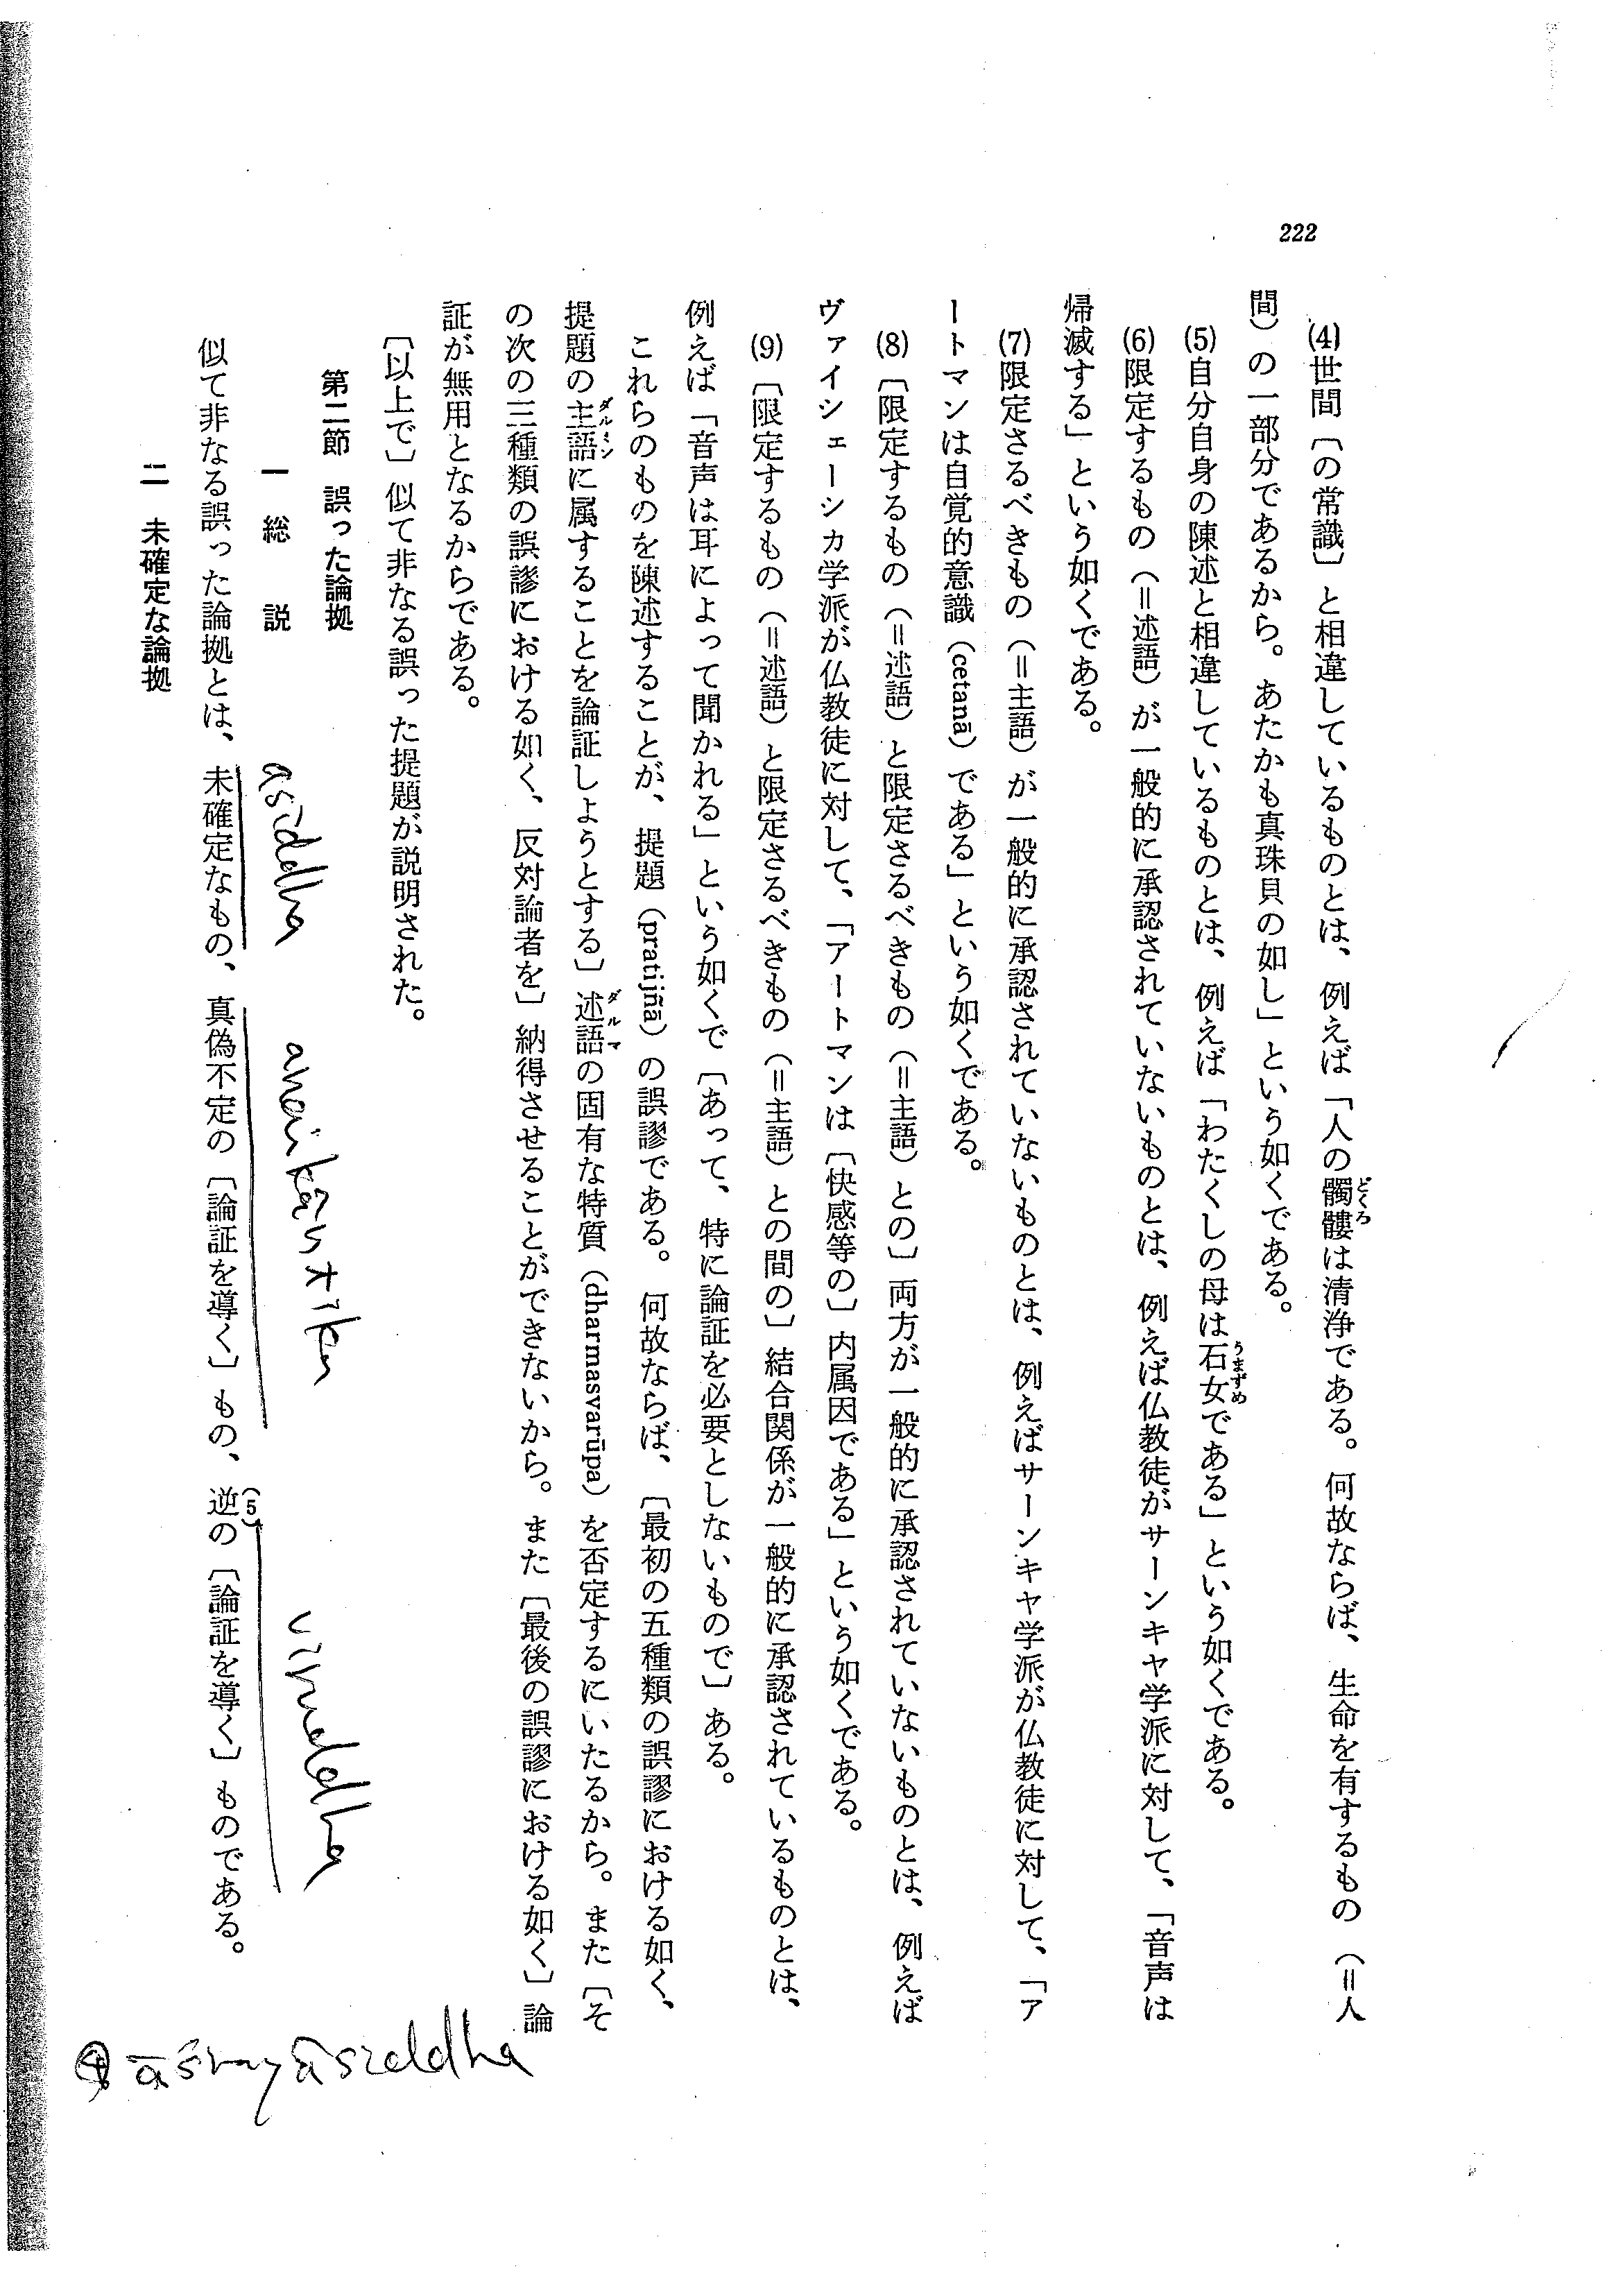 222
(4)世間〔の常識〕と相違しているものとは、例えば「人の髑髏は清浄である。何故ならば、生命を有するもの（＝人
どくろ
間）の一部分であるから。あたかも真珠貝の如し」という如くである。
(5)自分自身の陳述と相違しているものとは、例えば「わたくしの母は石女である」という如くである。
うまずめ
(6)限定するもの（＝述語）が一般的に承認されていないものとは、例えば仏教徒がサーンキヤ学派に対して、「音声は
帰滅する」という如くである。
(7)限定さるべきもの（＝主語）が一般的に承認されていないものとは、例えばサーンキヤ学派が仏教徒に対して、「ア
ートマンは自覚的意識（cetanā）である」という如くである。
(8)〔限定するもの（＝述語）と限定さるべきもの（＝主語）との〕両方が一般的に承認されていないものとは、例えば
ヴァイシェーシカ学派が仏教徒に対して、「アートマンは〔快感等の〕内属因である」という如くである。
(9)〔限定するもの（＝述語）と限定さるべきもの（＝主語）との間の〕結合関係が一般的に承認されているものとは、
例えば「音声は耳によって聞かれる」という如くで〔あって、特に論証を必要としないもので〕ある。
これらのものを陳述することが、提題（pratijñā）の誤謬である。何故ならば、〔最初の五種類の誤謬における如く、
提題の主語に属することを論証しようとする〕述語の固有な特質（dharmasvarūpa）を否定するにいたるから。また〔そ
ダルミン
ダルマ
の次の三種類の誤謬における如く、反対論者を〕納得させることができないから。また〔最後の誤謬における如く〕論
証が無用となるからである。
〔以上で〕似て非なる誤った提題が説明された。
第二節　誤った論拠
一　総　説
似て非なる誤った論拠とは、未確定なもの、真偽不定の〔論証を導く〕もの、逆の〔論証を導く〕ものである。
(5)
asiddha
anaikāntika
viruddha
二　未確定な論拠
④ āśrayāsiddha